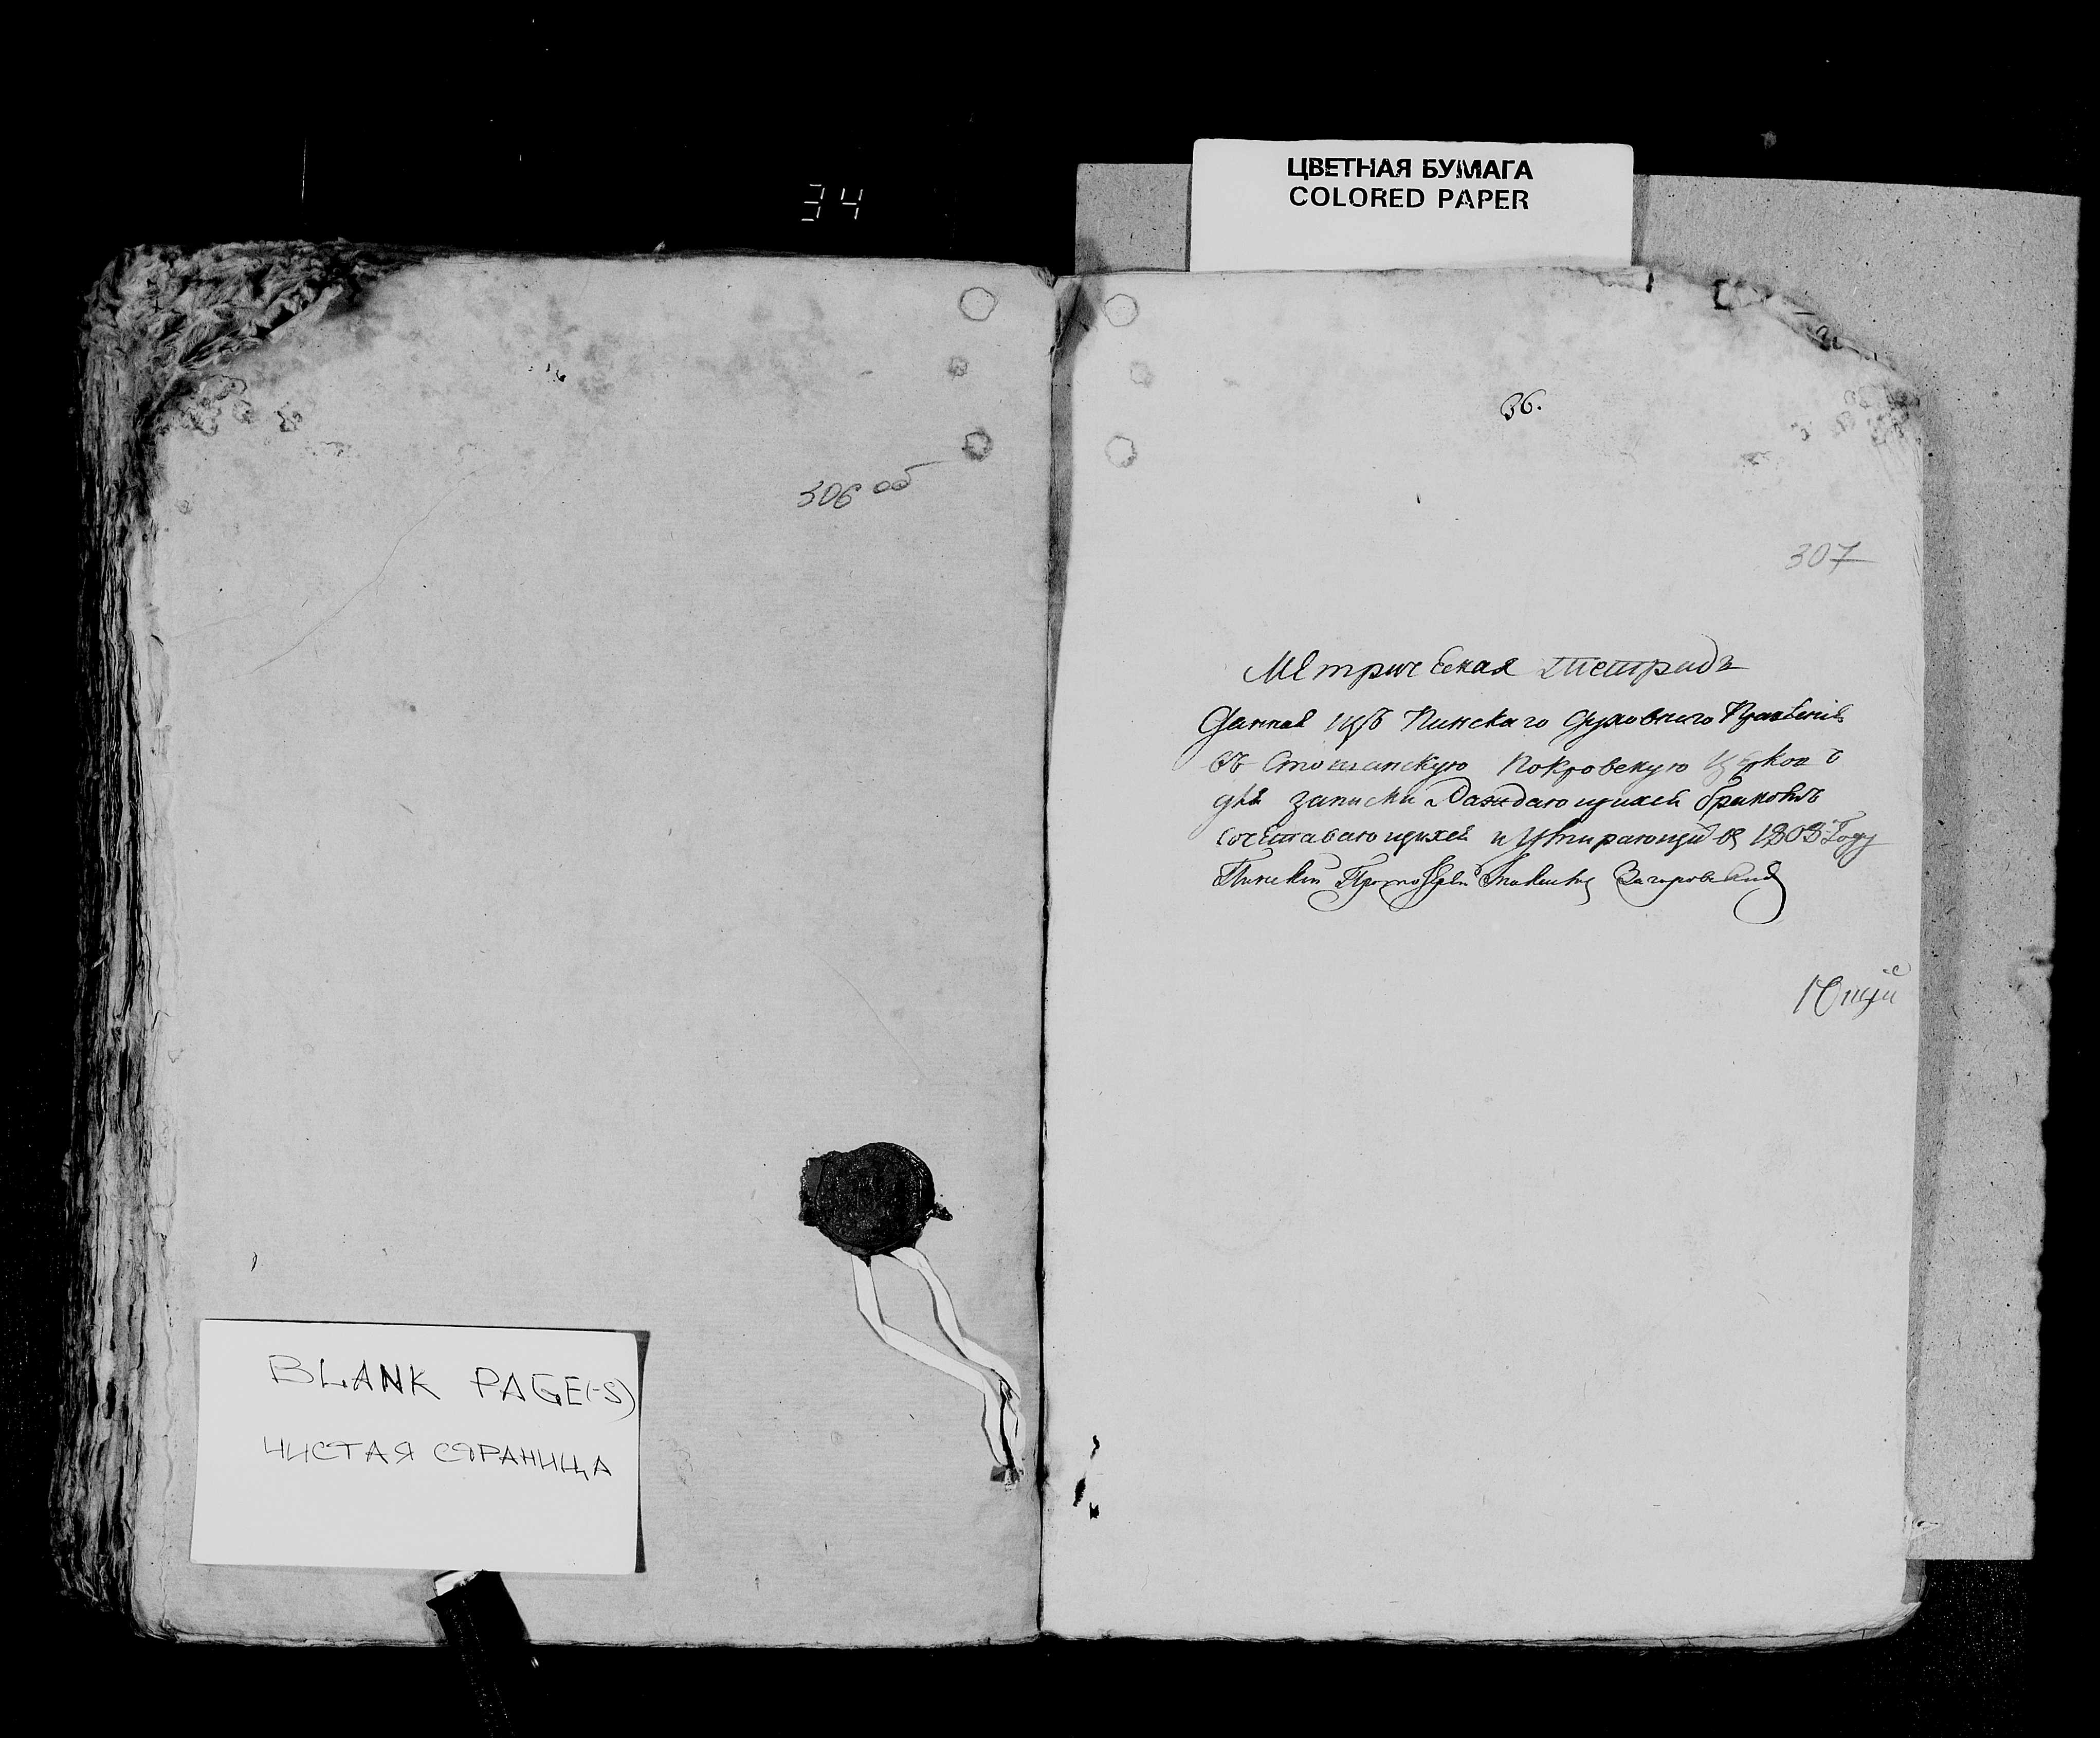 34
ЦВЕТНАЯ БУМАГА
COLORED PAPER
306 об
BLANK PAGE(-S)
ЧИСТАЯ СТРАНИЦА
36.
307
Метрическая тетрадь
Данная изъ Пинскаго Духовного Правления
въ Стошанскую Покровскую Церковь
для записки Раждающихся браковъ
сочетавающихся и Умирающи въ 1803 Году
Пинский Протоиерей